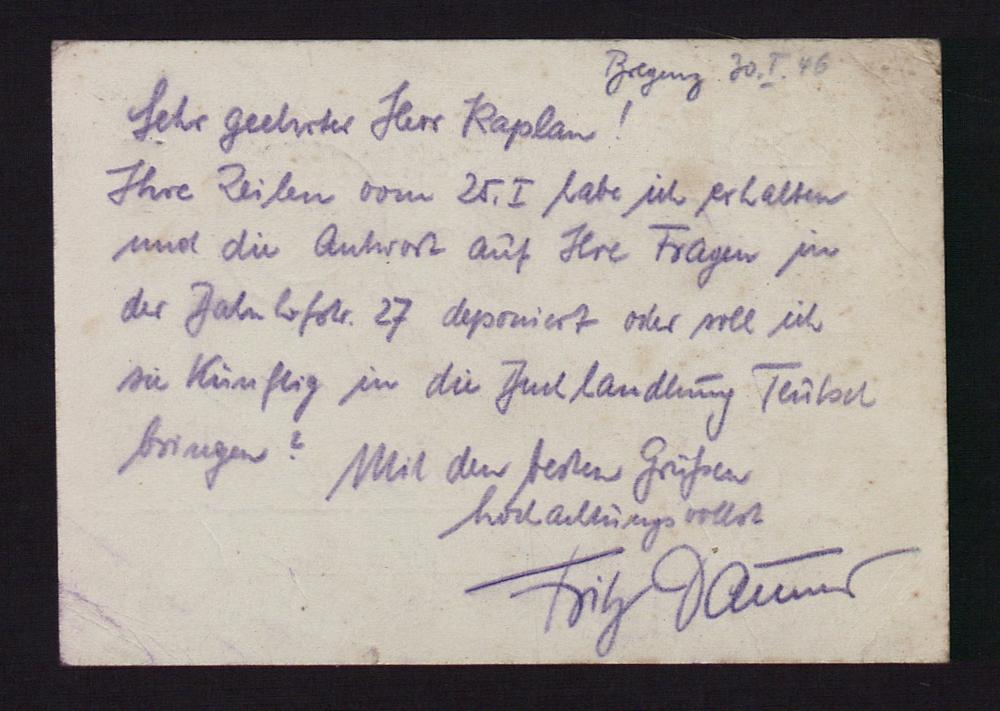 Bregenz 30.I.46
Sehr geehrter Herr Kaplan!
Ihre Zeilen vom 25.I habe ich erhalten
und die Antwort auf Ihre Fragen in
der Bahnhofstr. 27 deponiert oder soll ich
sie künftig in die Buchhandlung Teutsch
bringen?
Mit den besten Grüßen
hochachtungsvollst
Fritz